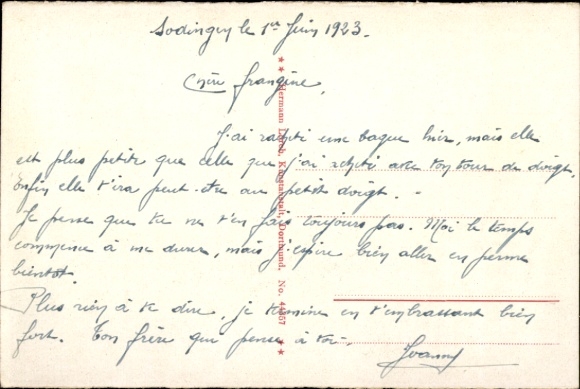 Sodingen le 1er Juin 1923.
Chère frangine,
J'ai racheté une bague hier, mais elle
est plus petite que celle que j'ai acheté avec ton tour de doigt.
Enfin elle t'ira peut-être au petit doigt. -
Je pense que tu ne t'en fais toujours pas. Moi le temps
commence à me durer, mais j'espère bien aller en perme
bientôt.
Plus rien à te dire, je termine en t'embrassant bien
fort. Ton frère qui pense à toi.
Joanny
Hermann Lorch, Kunstanstalt, Dortmund. No. 44357